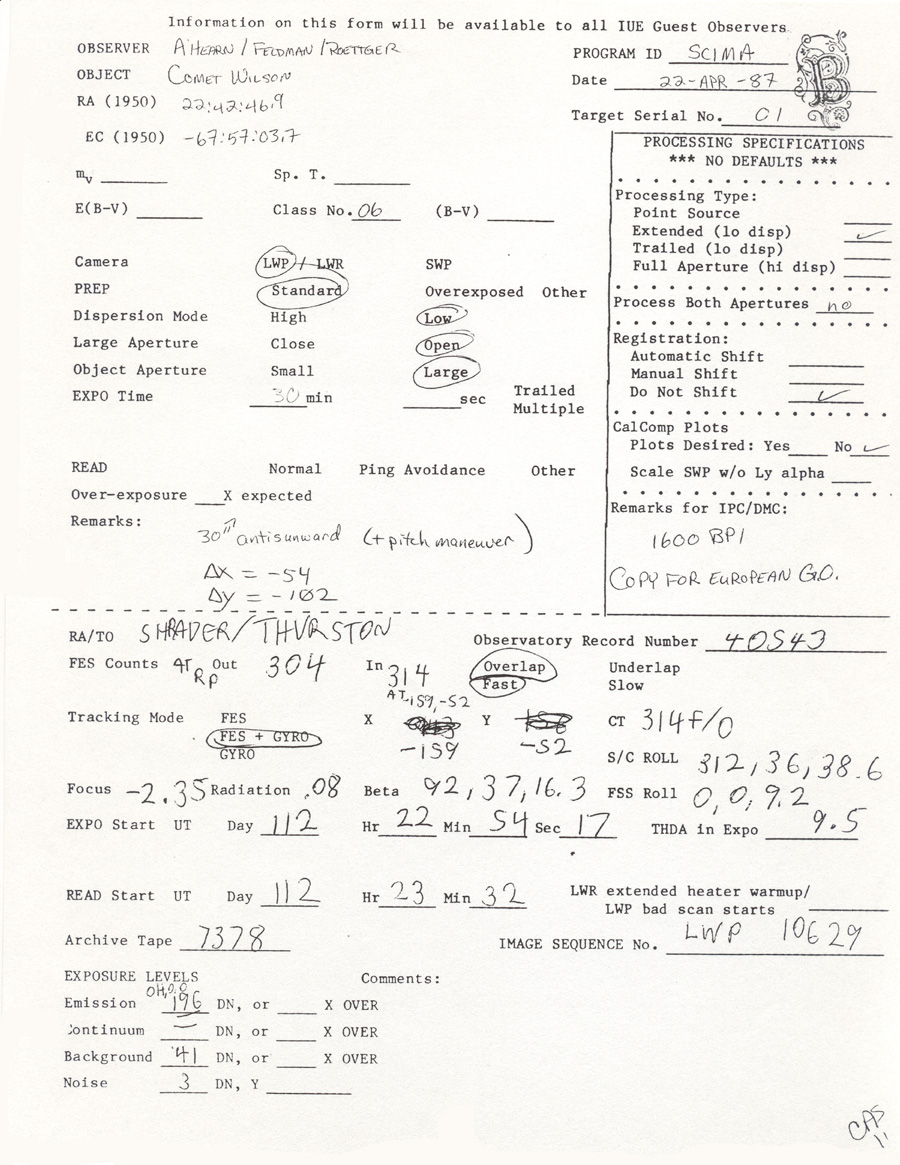 Information on this form will be available to all IUE Guest Observers
OBSERVER A'HEARN / FELDMAN / ROETTGER
PROGRAM ID SCIMA
OBJECT COMET WILSON
Date 22-APR-87
RA (1950) 22:42:46.9
Target Serial No. 01
EC (1950) -67:57:03.7
B
PROCESSING SPECIFICATIONS
*** NO DEFAULTS ***
mv ______ Sp. T. ______
E(B-V) ______ Class No. 06 (B-V) ______
Processing Type:
Point Source
Extended (lo disp) ✓
Trailed (lo disp)
Full Aperture (hi disp)
Process Both Apertures no
Registration:
Automatic Shift
Manual Shift
Do Not Shift ✓
CalComp Plots
Plots Desired: Yes ___ No ✓
Scale SWP w/o Ly alpha ____
Remarks for IPC/DMC:
1600 BPI
COPY FOR EUROPEAN G.O.
Camera LWP / LWR SWP
PREP Standard Overexposed Other
Dispersion Mode High Low
Large Aperture Close Open
Object Aperture Small Large
EXPO Time 30 min ______ sec Trailed
Multiple
READ Normal Ping Avoidance Other
Over-exposure ___X expected
Remarks:
30" antisunward (+ pitch maneuver)
Δx = -54
Δy = -102
RA/TO SHRADER/THURSTON
Observatory Record Number 40543
FES Counts AT RP Out 304 In 314 Overlap Underlap
Fast Slow
AT -159, -52
Tracking Mode FES X Y CT 314 F/O
FES + GYRO -159 -52
GYRO S/C ROLL 312, 36, 38.6
Focus -2.35 Radiation .08 Beta 92, 37, 16.3 FSS Roll 0, 0, 9.2
EXPO Start UT Day 112 Hr 22 Min 54 Sec 17 THDA in Expo 9.5
READ Start UT Day 112 Hr 23 Min 32 LWR extended heater warmup/
LWP bad scan starts
Archive Tape 7378 IMAGE SEQUENCE No. LWP 10629
EXPOSURE LEVELS Comments:
Emission 196 DN, or ____ X OVER
Continuum — DN, or ____ X OVER
Background 41 DN, or ____ X OVER
Noise 3 DN, Y ______